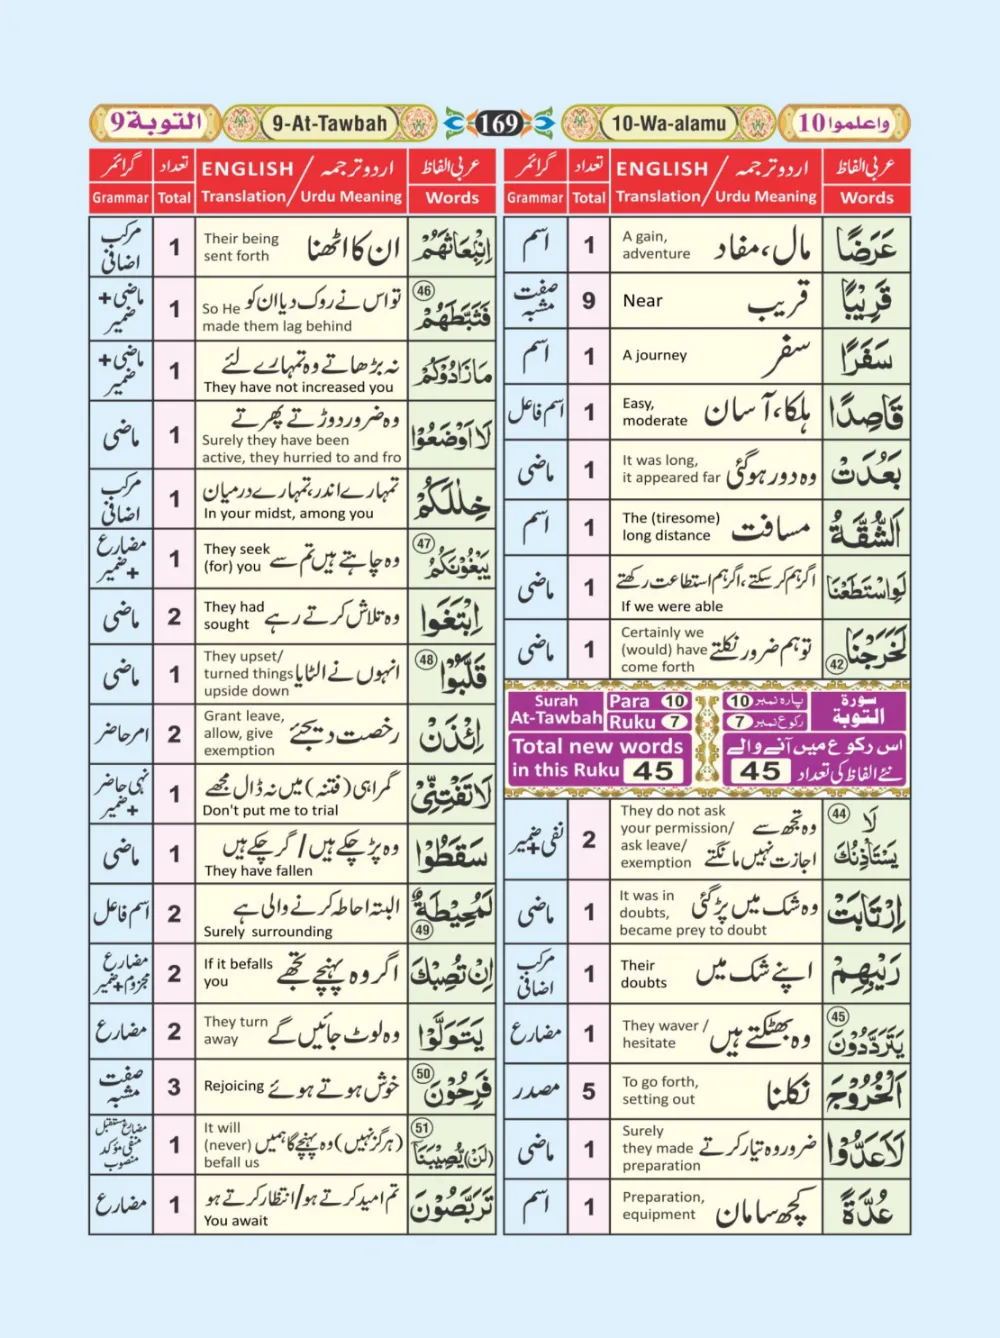 واعلموا 10
10-Wa-alamu
169
9-At-Tawbah
التوبة 9
عربی الفاظ
اردو ترجمہ / ENGLISH
تعداد
گرائمر
Words
Translation / Urdu Meaning
Total
Grammar
عَرَضًا
مال، مفاد
A gain,
adventure
1
اسم
قَرِيْبًا
قریب
Near
9
صفت
مشبہ
سَفَرًا
سفر
A journey
1
اسم
قَاصِدًا
ہلکا، آسان
Easy,
moderate
1
اسم فاعل
بَعُدَتْ
وہ دور ہوگئی
It was long,
it appeared far
1
ماضی
اَلشُّقَّةُ
مسافت
The (tiresome)
long distance
1
اسم
لَوِاسْتَطَعْنَا
اگر ہم کر سکتے، اگر ہم استطاعت رکھتے
If we were able
1
ماضی
لَخَرَجْنَا
42
تو ہم ضرور نکلتے
Certainly we
(would) have
come forth
1
ماضی
سورة
التوبة
پارہ نمبر 10
رکوع نمبر 7
Surah
At-Tawbah
Para 10
Ruku 7
اس رکوع میں آنے والے
نئے الفاظ کی تعداد 45
Total new words
in this Ruku 45
44
لَا
يَسْتَاْذِنُكَ
وہ تجھ سے
اجازت نہیں مانگتے
They do not ask
your permission/
ask leave/
exemption
2
نفی+ضمیر
اِرْتَابَتْ
وہ شک میں پڑ گئی
It was in
doubts,
became prey to doubt
1
ماضی
رَيْبِهِمْ
اپنے شک میں
Their
doubts
1
مرکب
اضافی
45
يَتَرَدَّدُوْنَ
وہ بھٹکتے ہیں
They waver /
hesitate
1
مضارع
اَلْخُرُوْجَ
نکلنا
To go forth,
setting out
5
مصدر
لَاَعَدُّوْا
ضرور وہ تیار کرتے
Surely
they made
preparation
1
ماضی
عُدَّةً
کچھ سامان
Preparation,
equipment
1
اسم
عربی الفاظ
اردو ترجمہ / ENGLISH
تعداد
گرائمر
Words
Translation / Urdu Meaning
Total
Grammar
اِنْۢبِعَاثَهُمْ
ان کا اٹھنا
Their being
sent forth
1
مرکب
اضافی
46
فَثَبَّطَهُمْ
تو اس نے روک دیا ان کو
So He
made them lag behind
1
ماضی+
ضمیر
مَازَادُوْكُمْ
نہ بڑھاتے وہ تمہارے لئے
They have not increased you
1
ماضی+
ضمیر
لَا۟اَوْضَعُوْا
وہ ضرور دوڑتے پھرتے
Surely they have been
active, they hurried to and fro
1
ماضی
خِلٰلَكُمْ
تمہارے اندر، تمہارے درمیان
In your midst, among you
1
مرکب
اضافی
47
يَبْغُوْنَكُمُ
وہ چاہتے ہیں تم سے
They seek
(for) you
1
مضارع
+ضمیر
اِبْتَغَوُا
وہ تلاش کرتے رہے
They had
sought
2
ماضی
48
قَلَّبُوْا
انہوں نے الٹایا
They upset/
turned things
upside down
1
ماضی
اِئْذَنْ
رخصت دیجئے
Grant leave,
allow, give
exemption
2
امر حاضر
لَا تَفْتِنِّيْ
گمراہی (فتنہ) میں نہ ڈال مجھے
Don't put me to trial
1
نہی حاضر
+ضمیر
سَقَطُوْا
وہ پڑ چکے ہیں / گر چکے ہیں
They have fallen
1
ماضی
لَمُحِيْطَةٌۢ
49
البتہ احاطہ کرنے والی ہے
Surely surrounding
2
اسم فاعل
اِنْ تُصِبْكَ
اگر وہ پہنچے تجھے
If it befalls
you
2
مضارع
مجزوم+ضمیر
يَتَوَلَّوْا
وہ لوٹ جائیں گے
They turn
away
2
مضارع
50
فَرِحُوْنَ
خوش ہوتے ہوئے
Rejoicing
3
صفت
مشبہ
51
(لَنْ) يُّصِيْبَنَا
(ہرگز نہیں) وہ پہنچے گا ہمیں
It will
(never)
befall us
1
مضارع مستقبل
منفی مؤکد
منصوب
تَرَبَّصُوْنَ
تم امید کرتے ہو/انتظار کرتے ہو
You await
1
مضارع